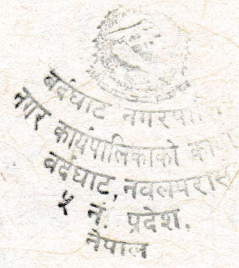 बर्दघाट नगरपालि
नगर कार्यपालिकाको कार्या
बर्दघाट, नवलपरासी
५ नं. प्रदेश,
नेपाल